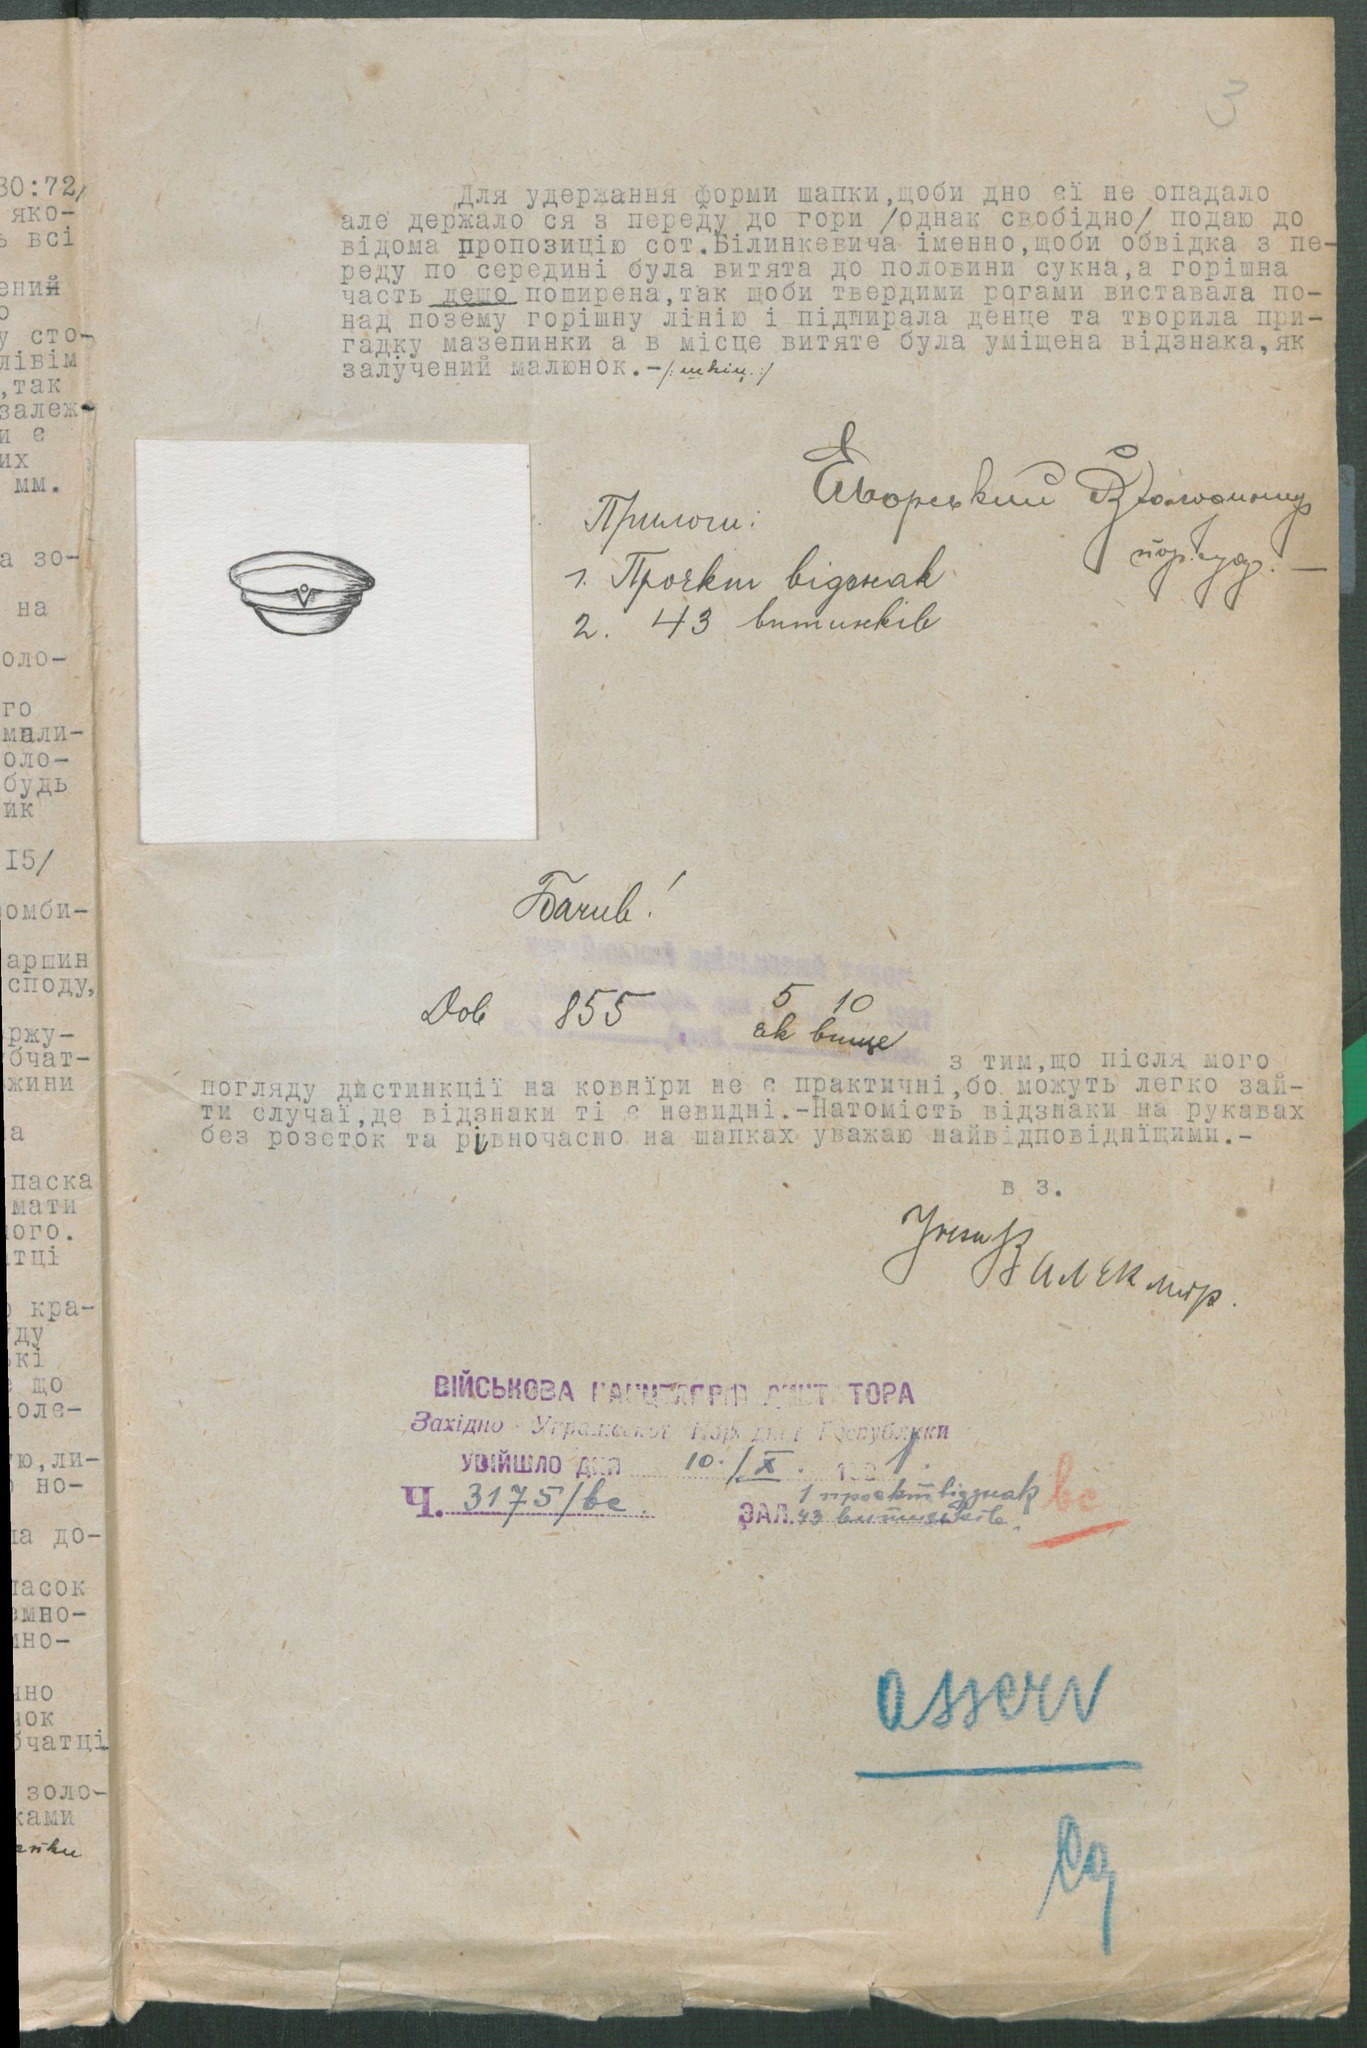 3
Для удержання форми шапки,щоби дно єї не опадало
але держало ся з переду до гори /однак свобідно/ подаю до
відома пропозицію сот.Білинкевича іменно,щоби обвідка з пе-
реду по середині була витята до половини сукна,а горішна
часть дещо поширена,так щоби твердими рогами виставала по-
над позему горішну лінію і підпирала денце та творила при-
гадку мазепинки а в місце витяте була уміщена відзнака,як
залучений малюнок.-/:шкіц.:/
Яворський Володимир
Прилоги:
1. Проєкт відзнак
2. 43 витинків
Бачив!
Дов 855 5 10
як вище
з тим,що після мого
погляду дистинкції на ковнїри не є практичні,бо можуть легко зай-
ти случаї,де відзнаки ті є невидні.-Натомість відзнаки на рукавах
без розеток та рівночасно на шапках уважаю найвідповіднїщими.-
в з.
ВІЙСЬКОВА КАНЦЕЛЯРІЯ ДИКТАТОРА
Західно-Української Народньої Республики
УВІЙШЛО ДНЯ 10./X. 192
Ч. 3175/вс. ЗАЛ. 1 проєкт відзнак
43 витинків.
вс
asserv
30:72/
яко-
всі
сто-
лівім
,так
залеж-
и є
их
мм.
а зо-
на
оло-
го
мали-
оло-
будь
ик
I5/
омби-
аршин
споду,
ржу-
бчат-
жини
а
паска
мати
ого.
тці
кра-
ду
кі
що
оле-
ю,ли-
но-
а до-
асок
емно-
но-
но
ок
бчатці
золо-
ками